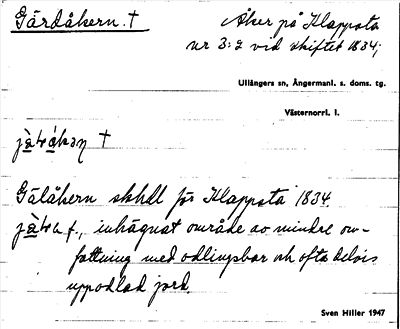 Gärdåkern. †
Åker på Klappsta
nr 3:2 vid skiftet 1834;
Ullångers sn, Ångermanl. s. doms. tg.
Västernorrl. l.
†
Gälåkern skhdl för Klappsta 1834.
f., inhägnat område av mindre om-
fattning med odlingsbar och ofta delvis
uppodlad jord.
Sven Hiller 1947